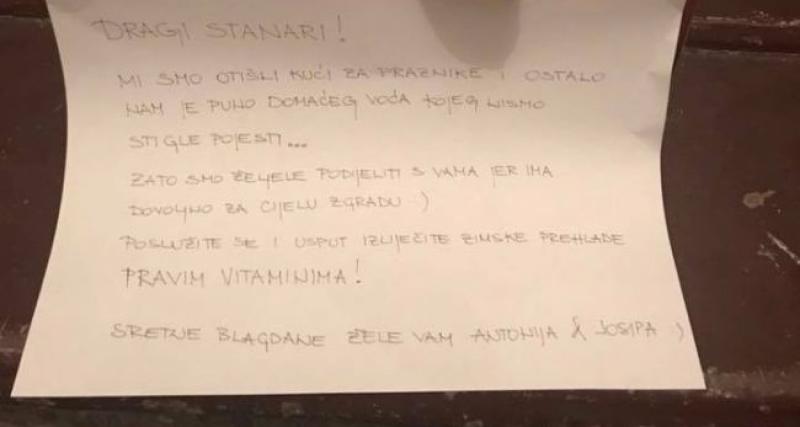 DRAGI STANARI!
MI SMO OTIŠLI KUĆI ZA PRAZNIKE I OSTALO
NAM JE PUNO DOMAĆEG VOĆA KOJEG NISMO
STIGLE POJESTI...
ZATO SMO ŽELJELE PODIJELITI S VAMA JER IMA
DOVOLJNO ZA CIJELU ZGRADU :)
POSLUŽITE SE I USPUT IZLIJEČITE ZIMSKE PREHLADE
PRAVIM VITAMINIMA!
SRETNE BLAGDANE ŽELE VAM ANTONIJA & JOSIPA :)